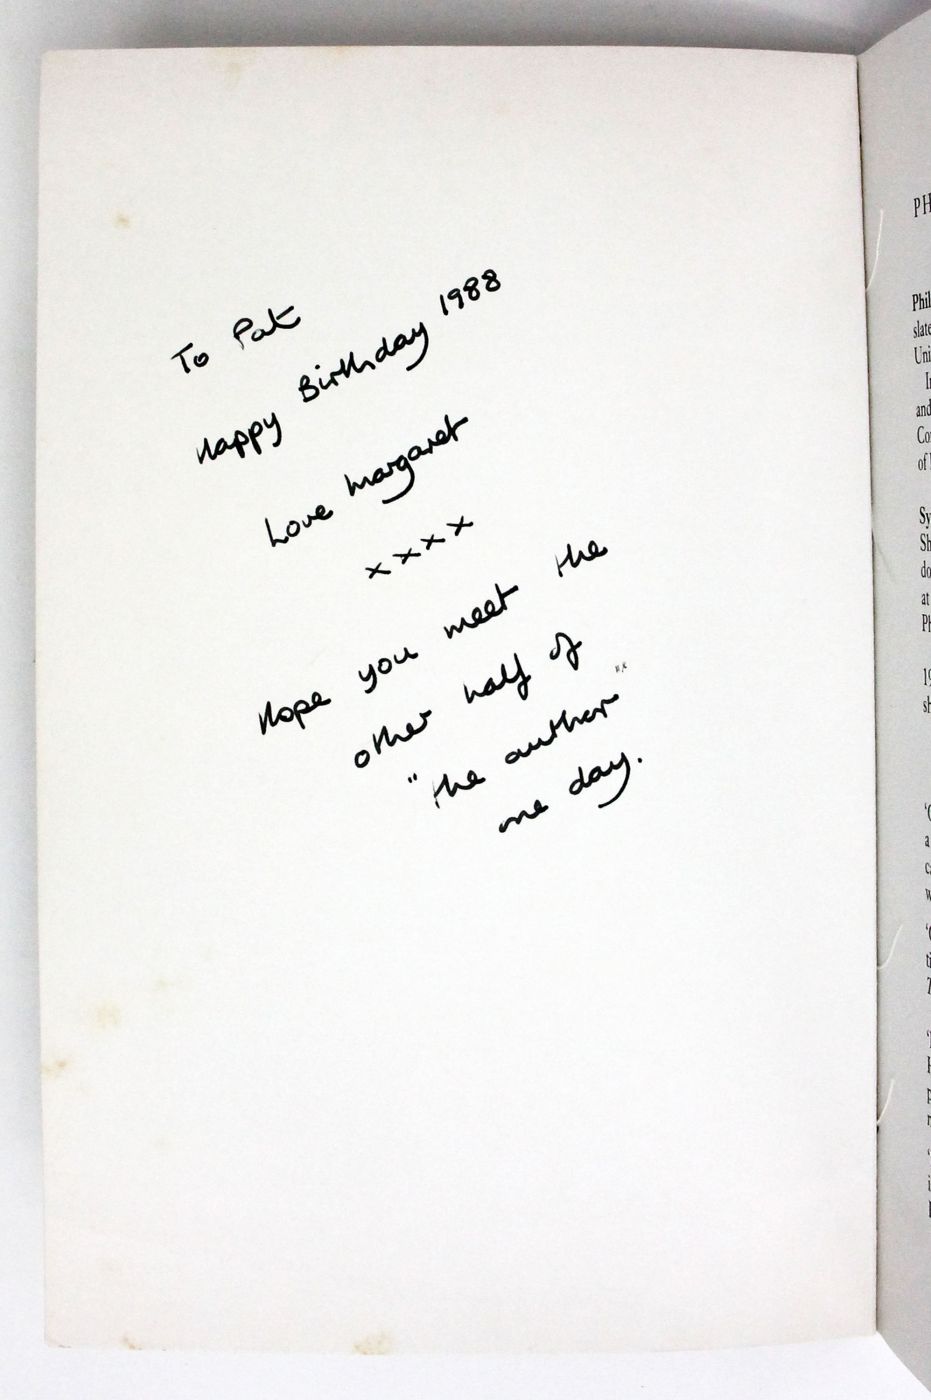 To Pat
Happy Birthday 1988
Love Margaret
xxxx
Hope you meet the
other half of
"the author"
one day.
PH
Phil
slate
Uni
In
and
Cou
of
Sy
Sh
do
at
Ph
19
sh
'C
a
ca
w
'C
ti
T